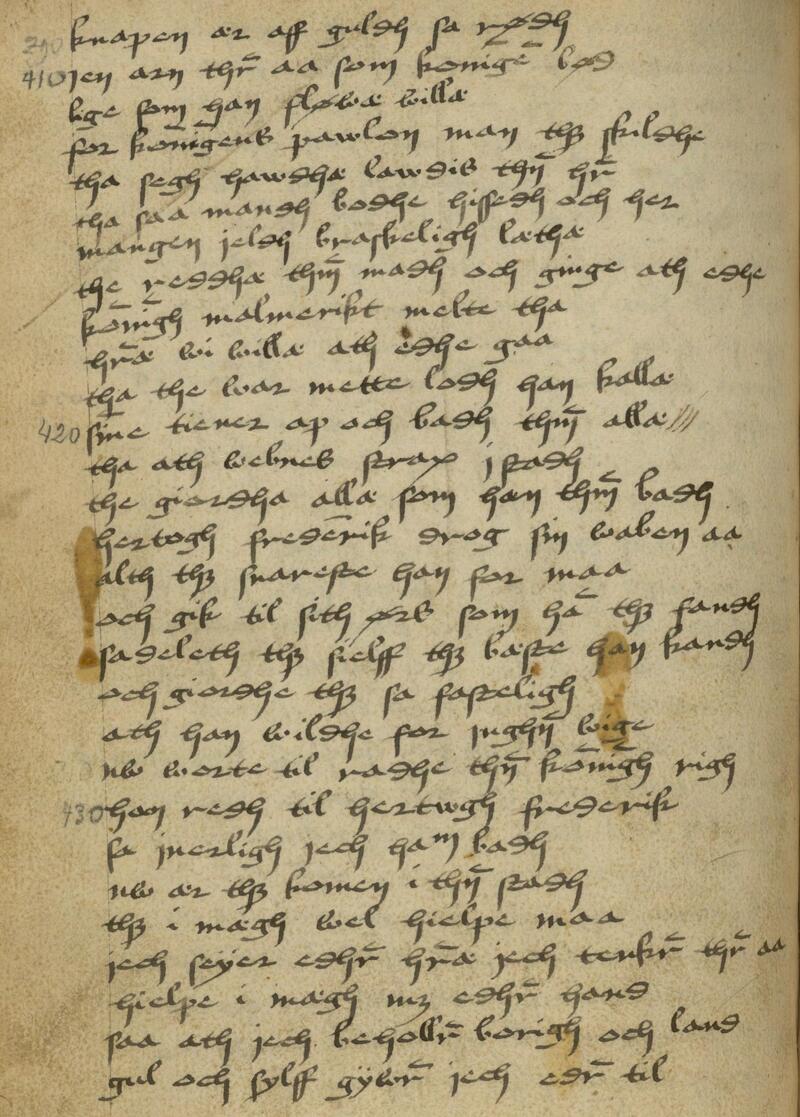 knapen ær aff guldh sa rødh
410 jen arn thr̄ aa som konīgē bød
lige som han fløwæ willæ
for konīgens pawlon man thꝫ skildhe
tha segh hawdhæ lawdis thn̄ hr̄
tha saa mandh bodhe hissedh och her
mangen jeldh braskeligh læthæ
the reddhæ thm̄ madh och ginge ath edhe
konīgh malmerikt melte tha
hr̄æ wi willæ ath edhe gaa
tha the war mette lodh han kallæ
420 sine tiener ap och badh thm̄ allæ ///
tha ath webnes strax j stadh
the giordha allæ som hæn thm̄ badh
hertogh frederik drog sin waben aa
alth thꝫ snareste han for maa
och gik til sith ørs som hā thꝫ fandh
sadeleth thꝫ sielff thꝫ bæste han kandh
och giordhe thꝫ sa fasteligh
ath han wildhe for jnghn̄ wige
nw worte til radhe thn̄ konīgh righ
430 han redh til hertwgh frederik
sa jnerligh jech ham badh
nw ær thꝫ komen i thn̄ stadh
thꝫ i mægh wel hielpe maa
jech seyer edhr̄ hr̄æ jech tenkr̄ thr̄ aa
hielpe i mægh mꝫ edhr̄ hand
saa ath jech behollr̄ borigh och land
gul och sylff gywr̄ jech edr̄ til